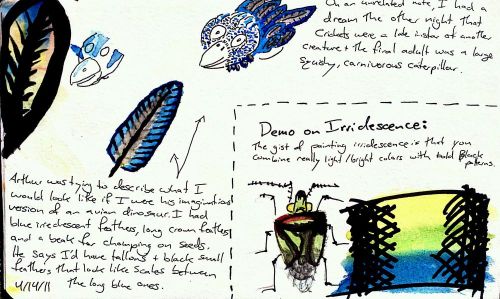 On an unrelated note, I had a
dream the other night that
Crickets were a late instar of another
creature + the final adult was a large
squishy, carnivorous caterpillar.
Demo on Irridescence:
The gist of painting irridescence is that you
combine really light/bright colors with total black
patterns.
Arthur was trying to describe what I
would look like if I were his imagination's
version of an avian dinosaur. I had
blue irredescent feathers, long crown feathers,
and a beak for chomping on seeds.
He says I'd have tallons + black small
feathers that look like scales between
the long blue ones.
4/14/11